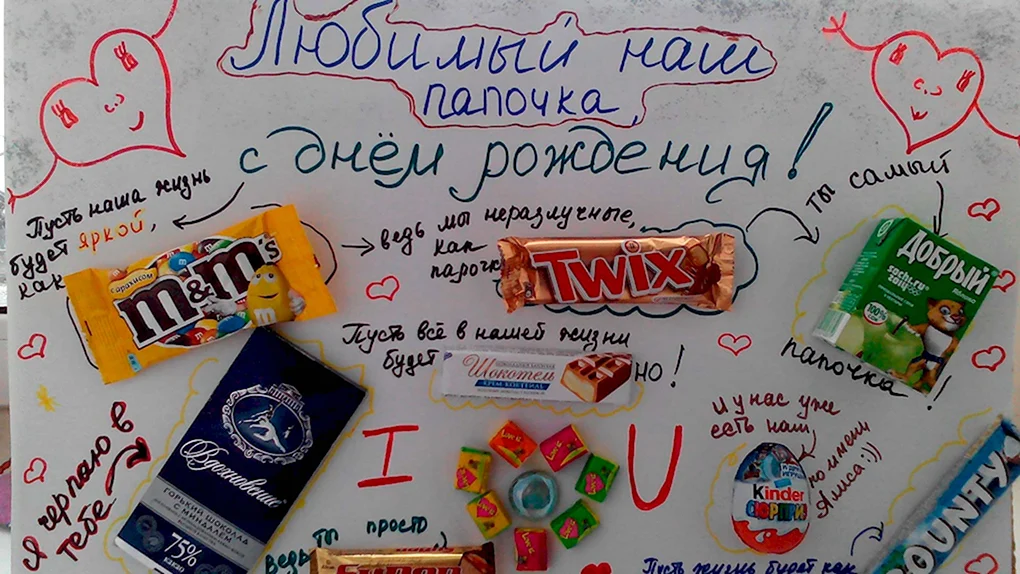 Любимый наш
папочка,
с днём рождения!
Пусть наша жизнь
будет яркой,
как
с арахисом
m&m's
ведь мы неразлучные,
как
парочка
TWIX
ты самый
Добрый
sochi.ru
2014
Яблоко
100%
папочка!
Пусть всё в нашей жизни
будет
Шокотель
крем коктейль
но!
Я черпаю в
тебе
Вдохновение
ГОРЬКИЙ ШОКОЛАД
С МИНДАЛЕМ
75%
какао
I
U
Love is
и у нас уже
есть наш
Kinder
СЮРПРИЗ
по имени
Алиса:))
ведь ты просто
Super
Пусть жизнь будет как
BOUNTY